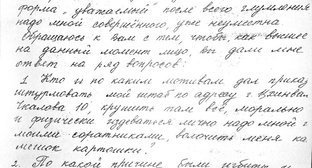 форма „уважаемый" после всего глумления
надо мной совершённого, уже неуместна
Обращаюсь к вам с тем, чтобы, как вышее
на данный момент лицо, вы дали мне
ответ на ряд вопросов:
1. Кто и по каким мотивам дал приказ
штурмовать мой штаб по адресу г. Цхинвал
Чкалова 10, крушить там всё, морально
и физически издеваться лично надо мной и
моими соратниками, волочить меня ка
мешок картошки?
2. По какой причине были избиты и